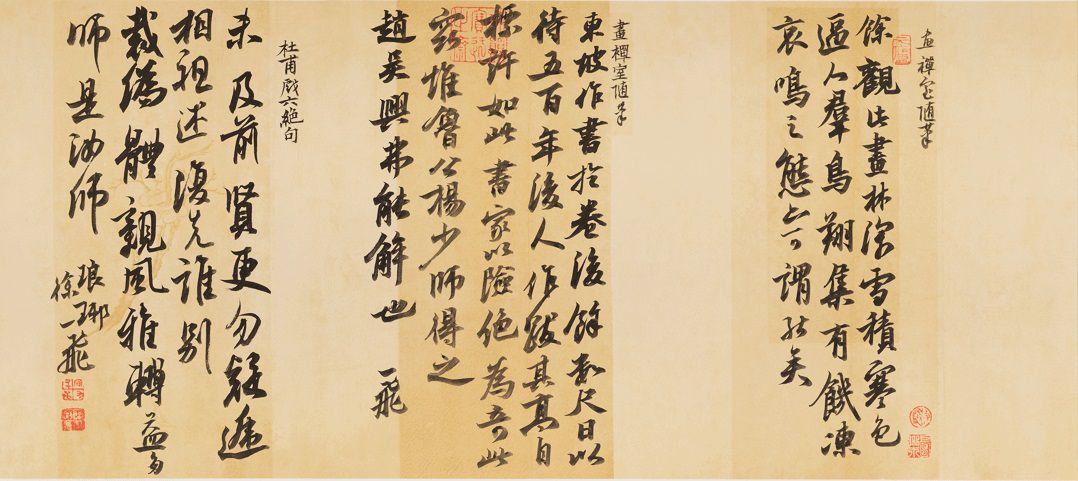 畫禪室隨筆
餘觀此畫林深雪積寒色
逼人羣鳥翔集有餓凍
哀鳴之態亦可謂能矣
畫禪室隨筆
東坡作書於卷後餘數尺曰以
待五百年後人作跋其高自
標許如此書家以險絕為奇此
竅惟魯公楊少師得之
趙吳興弗能解也 一飛
杜甫戲六絕句
未及前賢更勿疑遞
相祖述復先誰別
裁偽體親風雅轉益多
師是汝師
琅琊
徐一飛